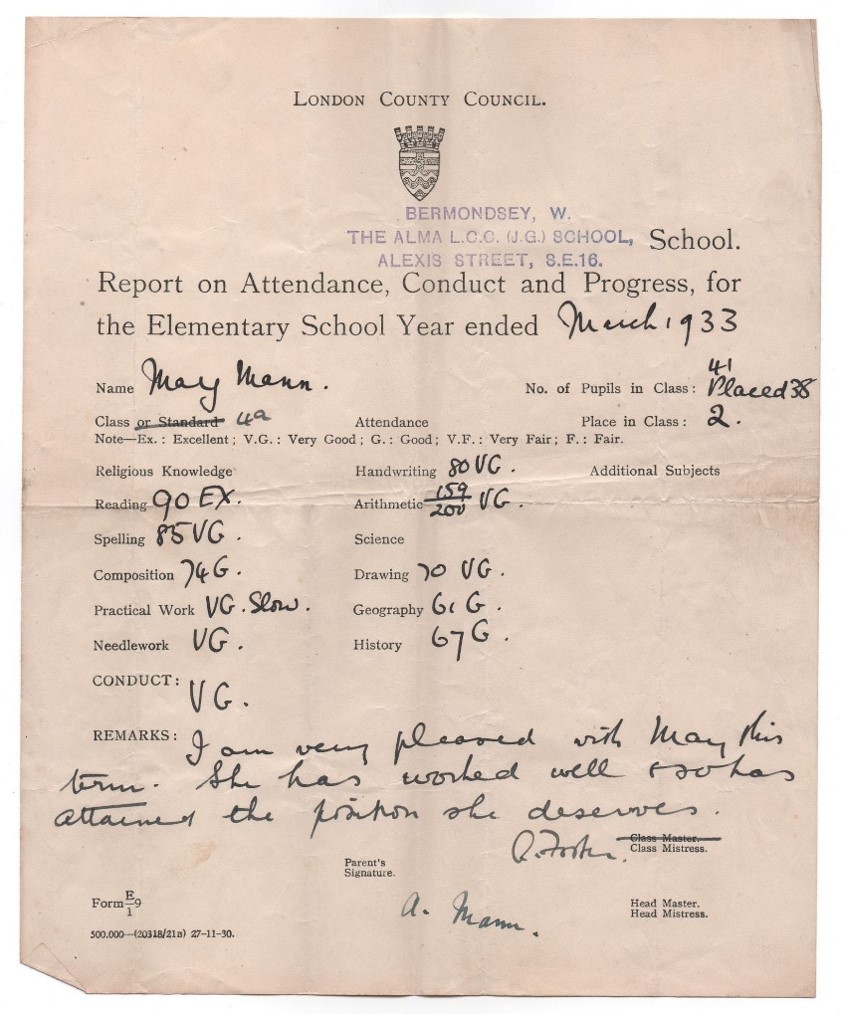 LONDON COUNTY COUNCIL.
BERMONDSEY, W.
THE ALMA L.C.C. (J.G.) SCHOOL, School.
ALEXIS STREET, S.E.16.
Report on Attendance, Conduct and Progress, for
the Elementary School Year ended March 1933
Name Mary Mann. No. of Pupils in Class: 41 Placed 38
Class or Standard 4a Attendance Place in Class: 2.
Note—Ex.: Excellent; V.G.: Very Good; G.: Good; V.F.: Very Fair; F.: Fair.
Religious Knowledge Handwriting 80 VG. Additional Subjects
Reading 90 EX. Arithmetic 159/200 VG.
Spelling 85 VG. Science
Composition 74 G. Drawing 70 VG.
Practical Work VG. Slow. Geography 61 G.
Needlework VG. History 67 G.
CONDUCT: VG.
REMARKS: I am very pleased with Mary this
term. She has worked well & so has
attained the position she deserves.
Class Master.
Foster. Class Mistress.
Parent's
Signature.
A. Mann.
Head Master.
Head Mistress.
Form E/1 9
500.000—(20318/21B) 27-11-30.